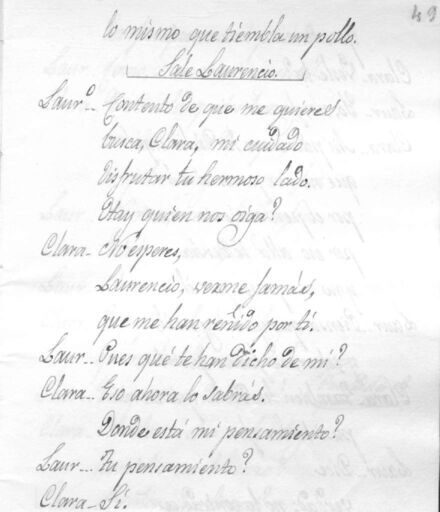 49
lo mismo que tiembla un pollo.
Sale Laurencio.
Laur.º - Contento de que me quieres
busca, Clara, mi cuidado
disfrutar tu hermoso lado.
Hay quien nos oiga?
Clara - No esperes,
Laurencio, verme jamás,
que me han reñido por tí.
Laur. - Pues qué te han dicho de mí?
Clara - Eso ahora lo sabrás.
Donde está mi pensamiento?
Laur. - Tu pensamiento?
Clara - Sí.